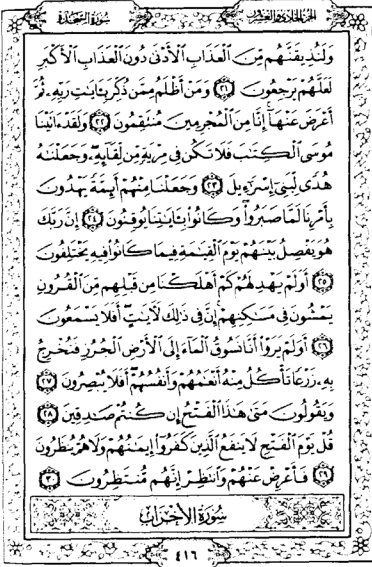 الجزء الحادي والعشرون سورة السجدة
وَلَنُذِيقَنَّهُم مِّنَ ٱلْعَذَابِ ٱلْأَدْنَىٰ دُونَ ٱلْعَذَابِ ٱلْأَكْبَرِ
لَعَلَّهُمْ يَرْجِعُونَ ٢١ وَمَنْ أَظْلَمُ مِمَّن ذُكِّرَ بِـَٔايَٰتِ رَبِّهِۦ ثُمَّ
أَعْرَضَ عَنْهَآ إِنَّا مِنَ ٱلْمُجْرِمِينَ مُنتَقِمُونَ ٢٢ وَلَقَدْ ءَاتَيْنَا
مُوسَى ٱلْكِتَٰبَ فَلَا تَكُن فِى مِرْيَةٍ مِّن لِّقَآئِهِۦ وَجَعَلْنَٰهُ
هُدًى لِّبَنِىٓ إِسْرَٰٓءِيلَ ٢٣ وَجَعَلْنَا مِنْهُمْ أَئِمَّةً يَهْدُونَ
بِأَمْرِنَا لَمَّا صَبَرُوا۟ وَكَانُوا۟ بِـَٔايَٰتِنَا يُوقِنُونَ ٢٤ إِنَّ رَبَّكَ
هُوَ يَفْصِلُ بَيْنَهُمْ يَوْمَ ٱلْقِيَٰمَةِ فِيمَا كَانُوا۟ فِيهِ يَخْتَلِفُونَ
٢٥ أَوَلَمْ يَهْدِ لَهُمْ كَمْ أَهْلَكْنَا مِن قَبْلِهِم مِّنَ ٱلْقُرُونِ
يَمْشُونَ فِى مَسَٰكِنِهِمْ إِنَّ فِى ذَٰلِكَ لَـَٔايَٰتٍ أَفَلَا يَسْمَعُونَ
٢٦ أَوَلَمْ يَرَوْا۟ أَنَّا نَسُوقُ ٱلْمَآءَ إِلَى ٱلْأَرْضِ ٱلْجُرُزِ فَنُخْرِجُ
بِهِۦ زَرْعًا تَأْكُلُ مِنْهُ أَنْعَٰمُهُمْ وَأَنفُسُهُمْ أَفَلَا يُبْصِرُونَ ٢٧
وَيَقُولُونَ مَتَىٰ هَٰذَا ٱلْفَتْحُ إِن كُنتُمْ صَٰدِقِينَ ٢٨
قُلْ يَوْمَ ٱلْفَتْحِ لَا يَنفَعُ ٱلَّذِينَ كَفَرُوٓا۟ إِيمَٰنُهُمْ وَلَا هُمْ يُنظَرُونَ
٢٩ فَأَعْرِضْ عَنْهُمْ وَٱنتَظِرْ إِنَّهُم مُّنتَظِرُونَ ٣٠
سُورَةُ الأَحْزَابِ
٤١٦